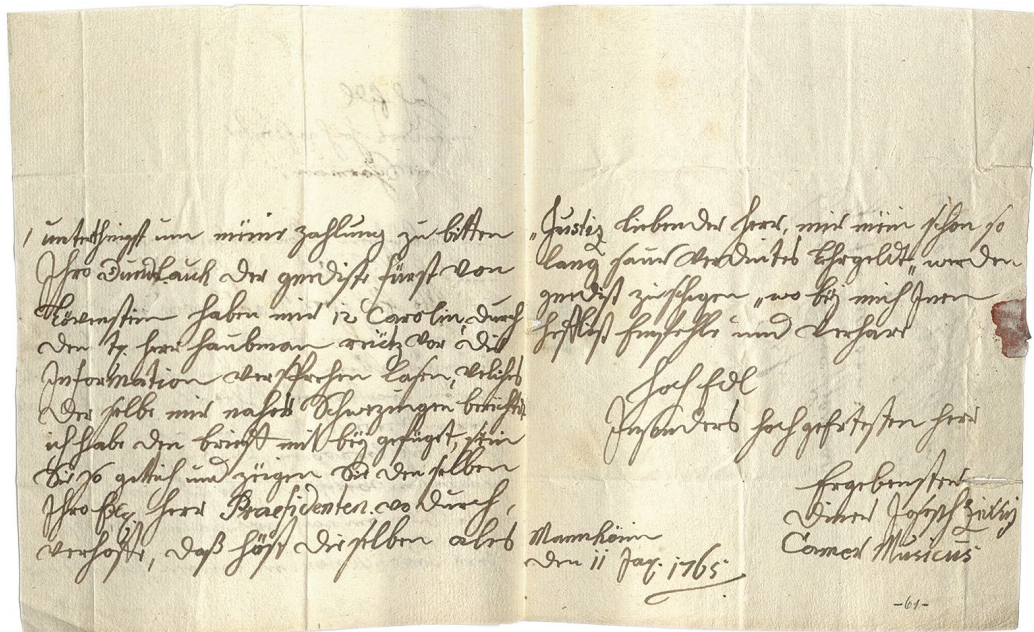 unterthingst um meine zahlung zu bitten
Ihro Durchlauch der gnedigste fürst von
Lövenstein haben mir 12 Carolin durch
den herr haubman reütz vor die
Information versprehen lasen, velches
der selbe mir naher Schwezingen berichtet
ich habe den brieff mit bey gefügt, sein
Sie so gettich und zeigen Sie den selben
Ihro Herr Praesidenten vo durch,
verhoffe, daß höst die selben als
Justiz liebender Herr, mir mein schon so
lang saur verdintes Lehrgeldt werden
gnedist zu wo bey mich Inen
hefflist Empfehle und verhare
Hoch Edl
Insonders hoch geehrtesten herr
Ergebenster
Diner Joseph
Camer Musicus
Mannheim
den 11 1765
-61-